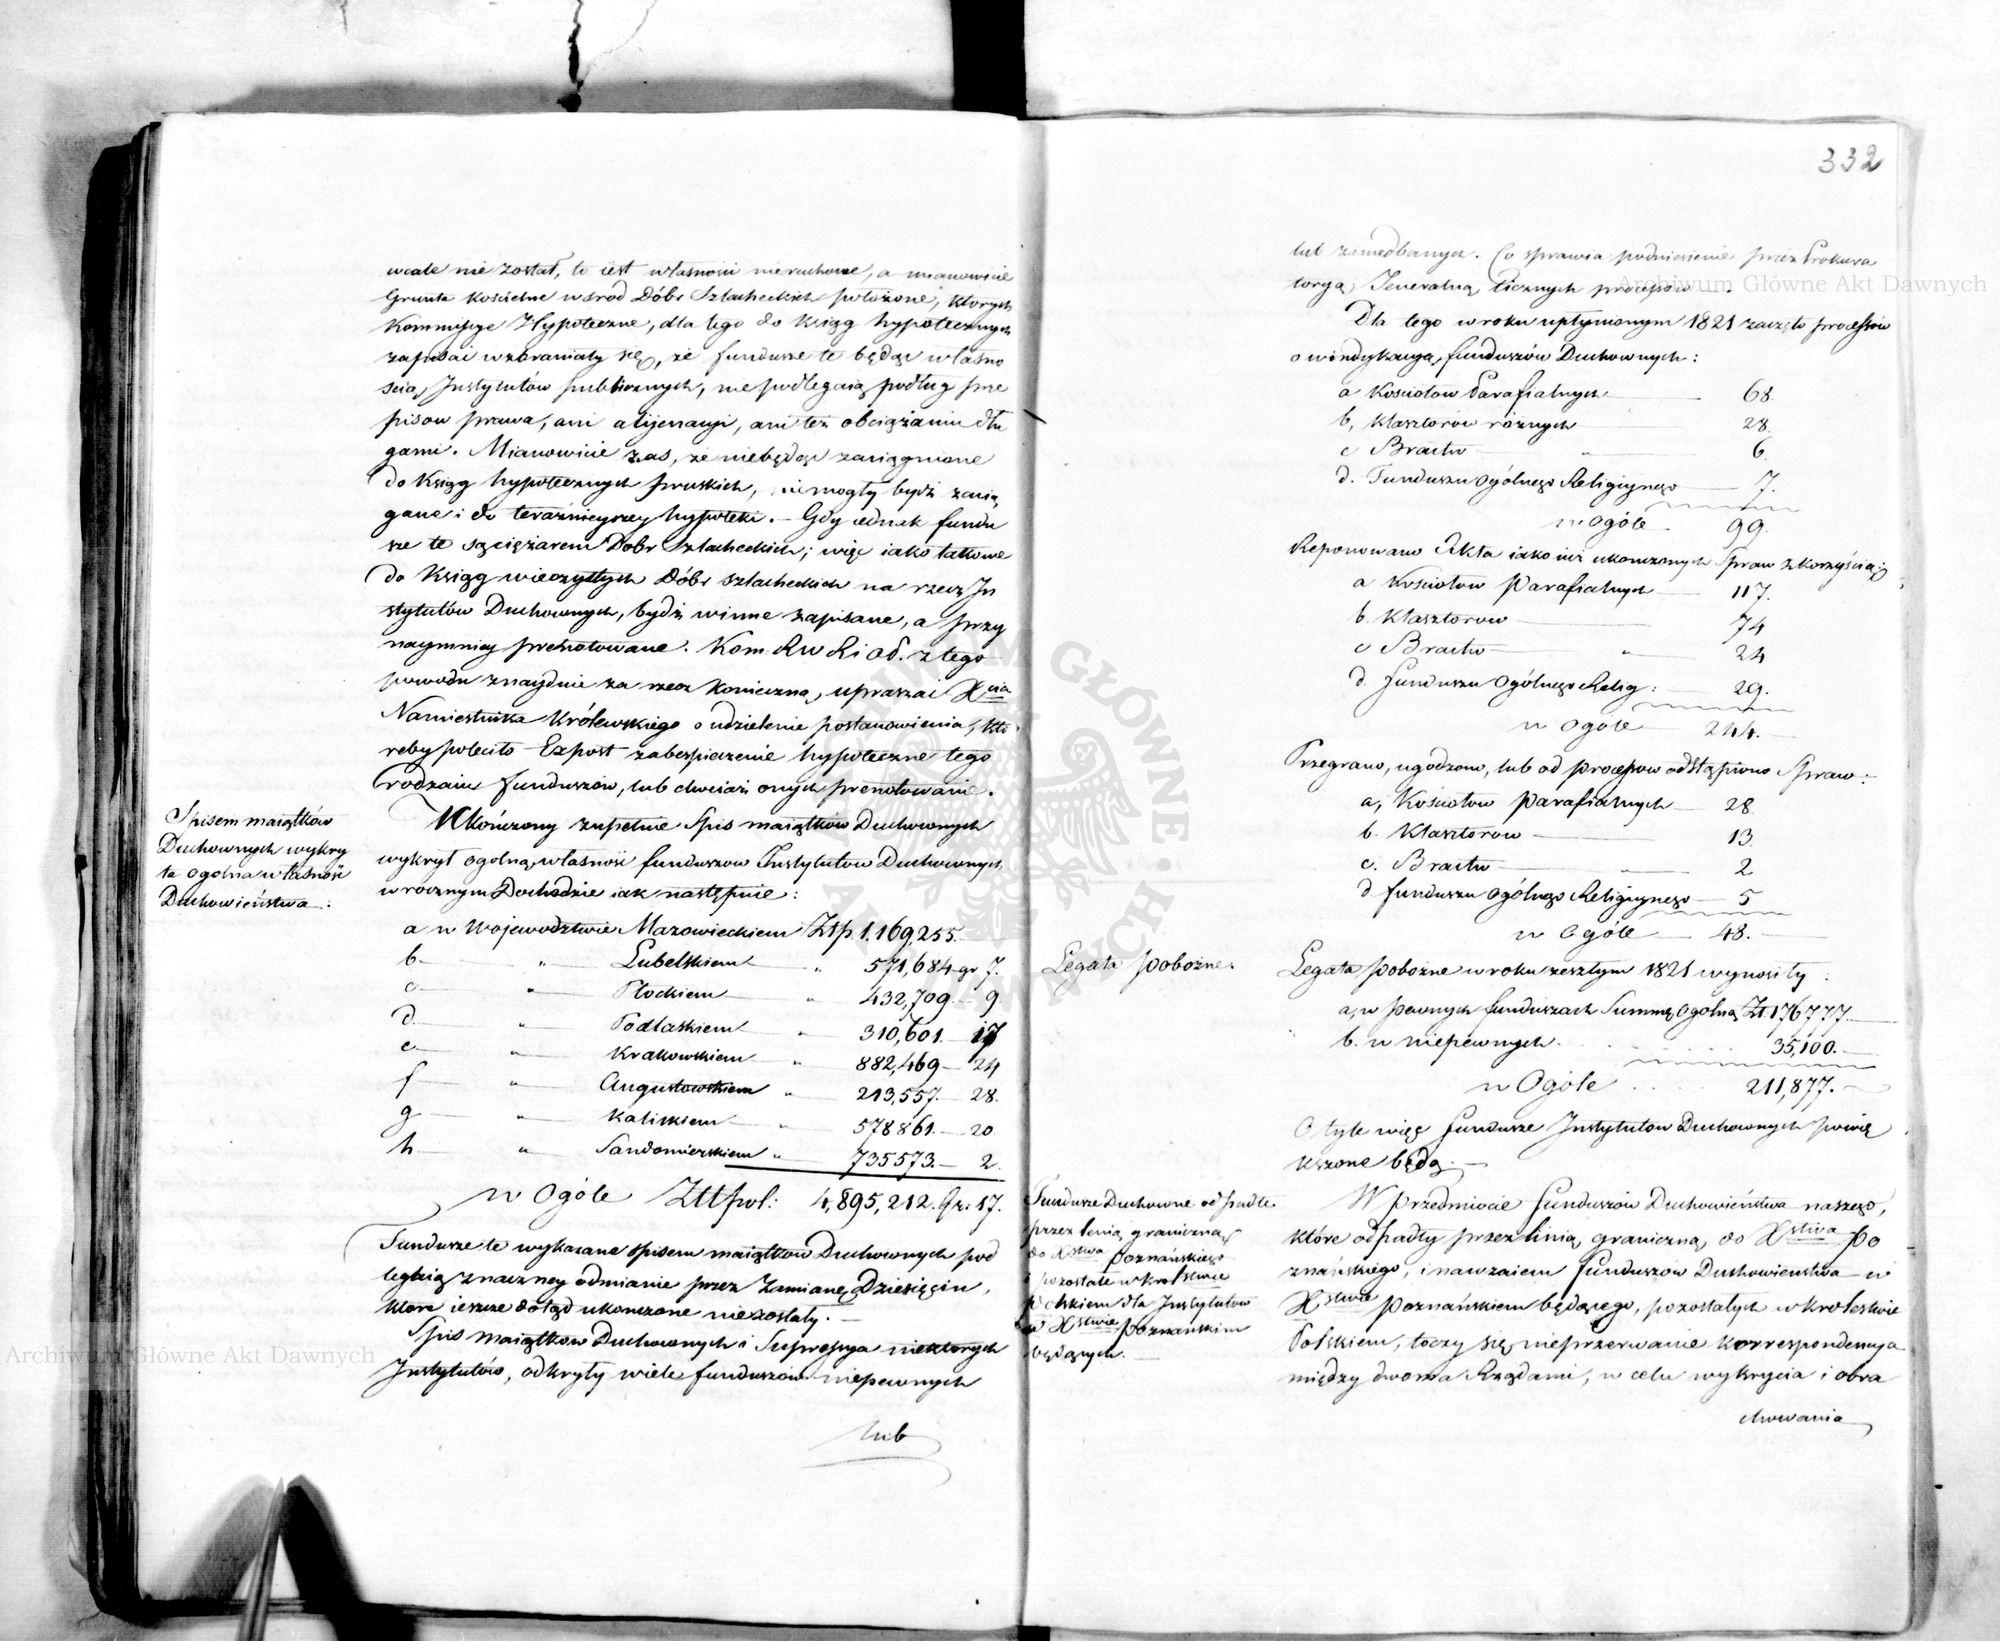 wcale nie został, to iest własności nieruchome, a mianowicie
Grunta kościelne wśrod Dóbr Szlacheckich położone, ktorych
Kommissye Hypoteczne, dla tego do ksiąg hypotecznych
zapisać wzbraniały się, że fundusze te będąc własno
scią Instytutów publicznych, nie podlegaią podług prze
pisow prawa, ani alijenacyi, ani też obciążaniu dłu
gami. Mianowicie zas, że niebędąc zaciągnione
do Ksiąg hypotecznych pruskich, niemogły bydź zacią
gane i do teraźnieyszey hypoteki. – Gdy iednak fundu
sze te są ciężarem Dobr Szlacheckich; więc iako takowe
do Ksiąg wieczystych Dóbr szlacheckich na rzecz In
stytutów Duchownych, bydź winne zapisane, a przy
naymniey prenotowane. Kom. R W R i O P. z tego
powodu znayduie za rzecz konieczną, upraszać Xcia
Namiestnika Królewskiego o udzielenie postanowienia, któ
reby poleciło Expost zabezpieczenie hypoteczne tego
rodzaiu funduszów, lub chociaż onych prenotowanie.
Spisem maiątków
Duchownych wykry
ta ogólna własność
Duchowieństwa:
Ukończony zupełnie Spis maiątków Duchownych
wykrył ogolną własność funduszow Instytutow Duchownych
w rocznym Dochodzie iak następnie:
a w Woiewodztwie Mazowieckiem Złp. 1,169,255.
b — " — Lubelskiem — " — 571,684 gr 7.
c — " — Płockiem — " — 432,709 — 9.
d — " — Podlaskiem — " — 310,601. — 17
e — " — Krakowskiem — " — 882,469 — 24
f — " — Augustowskiem — " — 213,557. — 28.
g — " — Kaliskiem — " — 578861. — 20.
h — " — Sandomierskiem " — 735573. — 2.
w Ogóle Złłpol: 4,895,212. Gr. 17.
Fundusze te wykazane spisem maiątkow Duchownych pod
legaią znaczney odmianie przez Zamianę Dziesięcin,
ktore ieszcze dotąd ukonczone nie zostały. —
Spis maiątkow Duchownych i Supressya niektorych
Instytutów, odkryły wiele funduszów niepewnych
lub
332
lub zaniedbanych. Co sprawia podniesienie przez Prokura
toryą Jeneralną licznych procesow.
Dla tego w roku upłynionym 1821 zaczęto processow
o windykacyą funduszów Duchownych:
a Kościołow Parafialnych — 68.
b, Klasztorow różnych — 28.
c Bractw — " — 6.
d. Funduszu ogólnego Religiynego — 7.
w Ogóle — 99.
Reponowano Akta iako iuż ukonczonych Spraw z korzyścią:
a Kościołow Parafialnych — 117.
b. Klasztorow — 74
c Bractw — " — 24
d. funduszu Ogólnego Relig: — 29.
w Ogole — 244. —
Przegrano, ugodzono, lub od procesow odstąpiono Spraw:
a, Kościołow Parafialnych — 28.
b. Klasztorow — 13.
c. Bractw — " — 2
d funduszu Ogólnego Religiynego — 5
w Ogóle — 48. —
Legata pobożne.
Legata pobożne w roku zeszłym 1821 wynosiły:
a, w pewnych funduszach Summę ogolną Zł. 176777. —
b. w niepewnych . . . 35,100. —
w Ogóle . . . 211,877. —
O tyle więc fundusze Instytutow Duchownych powię
kszone będą. —
Fundusze Duchowne odpadłe
przez linią graniczną
do Xstwa Poznańskiego
i pozostałe w Krolestwie
Polskiem dla Instytutow
w Xstwie Poznańskim
będących. —
W przedmiocie funduszów Duchowieństwa naszego,
które odpadły przez linią graniczną do Xstwa Po
znańskiego, i nawzaiem funduszów Duchowieństwa w
Xstwie Poznańskiem będącego, pozostałych w Krolestwie
Polskiem, toczy się nieprzerwanie korrespondencya
między dwoma Rządami, w celu wykrycia i obra
chowania
Archiwum Główne Akt Dawnych
Archiwum Główne Akt Dawnych
ARCHIWUM GŁÓWNE AKT DAWNYCH